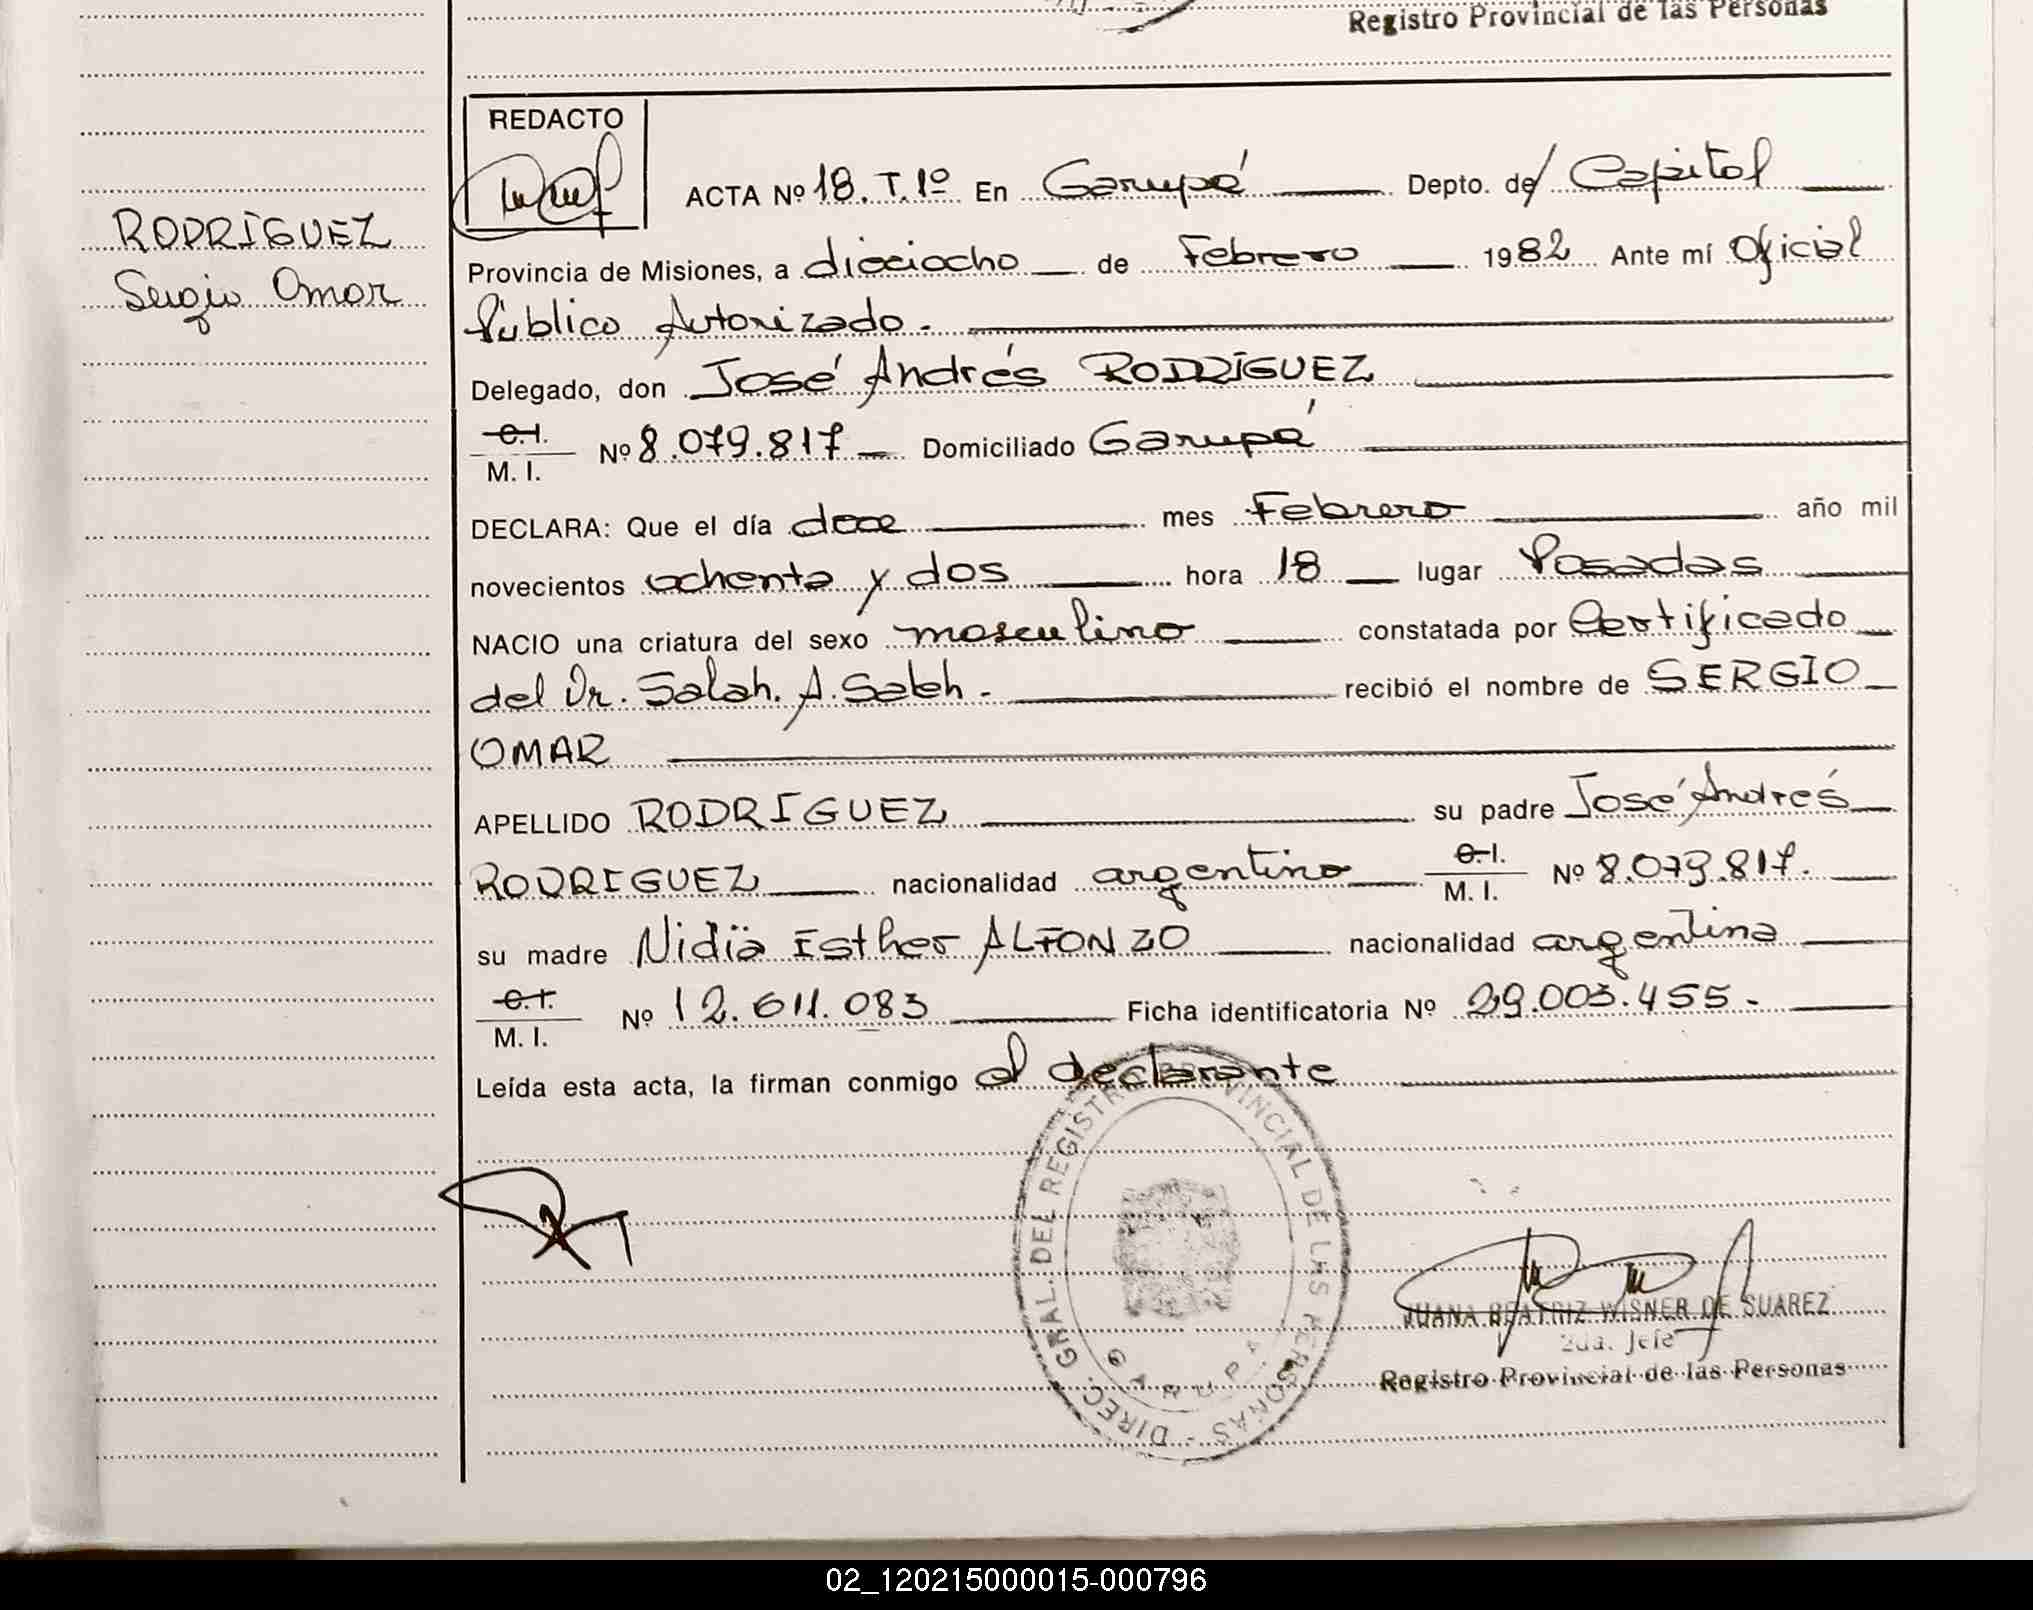 Registro Provincial de las Personas
REDACTO
ACTA Nº 18. T.1º En Garupá Depto. de Capital
RODRÍGUEZ
Sergio Omar
Provincia de Misiones, a dieciocho de Febrero 1982 Ante mí Oficial
Público Autorizado.
Delegado, don José Andrés RODRÍGUEZ
C.I.
M. I. Nº 8.079.817 Domiciliado Garupá
DECLARA: Que el día doce mes Febrero año mil
novecientos ochenta y dos hora 18 lugar Posadas
NACIO una criatura del sexo masculino constatada por Certificado
del Dr. Salah. A. Saleh. recibió el nombre de SERGIO
OMAR
APELLIDO RODRIGUEZ su padre José Andrés
RODRIGUEZ nacionalidad argentino C.I. M. I. Nº 8.079.817.
su madre Nidia Esther ALFONZO nacionalidad argentina
C.I.
M. I. Nº 12.611.083 Ficha identificatoria Nº 29.003.455.-
Leída esta acta, la firman conmigo el declarante
DIREC. GRAL. DEL REGISTRO PROVINCIAL DE LAS PERSONAS
GARUPA
JUANA BEATRIZ WISNER DE SUAREZ
2da. Jefe
Registro Provincial de las Personas
02_120215000015-000796